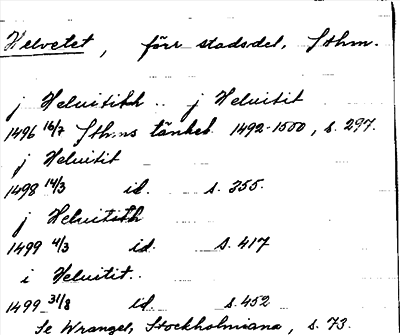 Helvetet, förr stadsdel, Sthm.
j Heluitith .. j Heluitit
1496 16/7 Sthms tänkeb. 1492-1500, s. 297.
j Heluitit
1498 14/3 id. s. 355.
j Heluitith
1499 4/3 id. s. 417
i Heluitit..
1499 31/8 id. s. 452
Se Wrangel, Stockholmiana, s. 73.